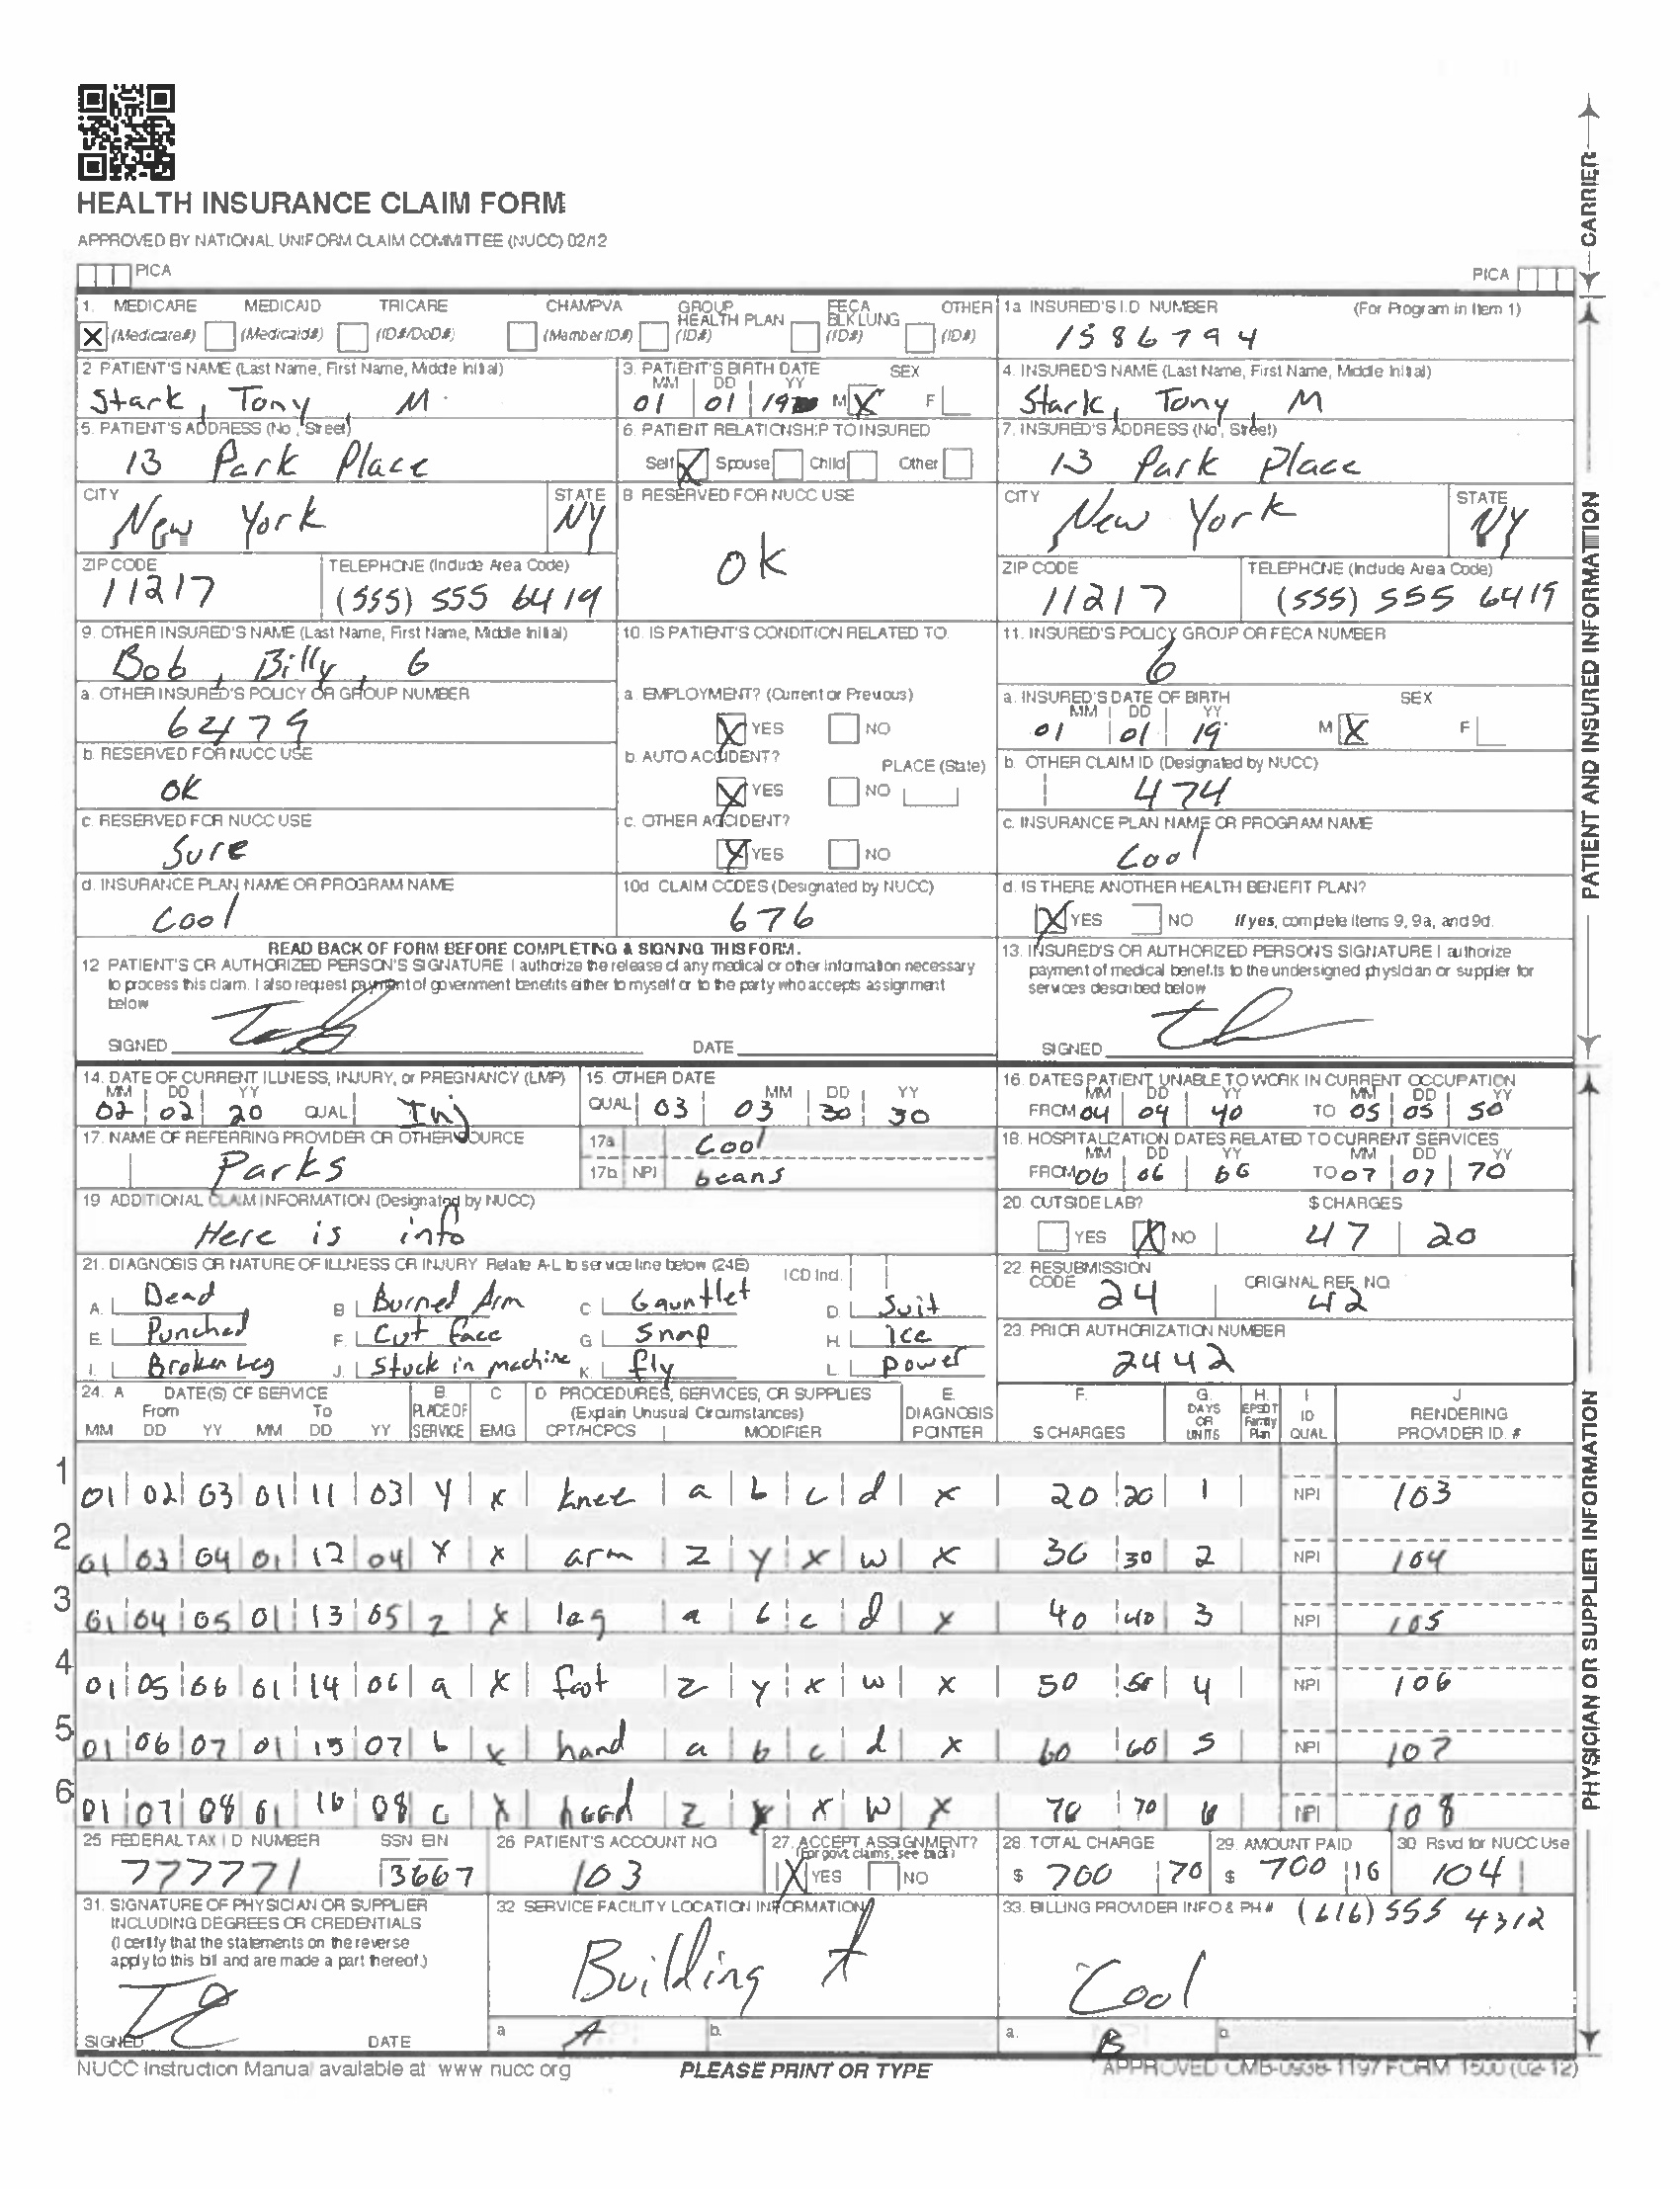 HEALTH INSURANCE CLAIM FORM
APPROVED BY NATIONAL UNIFORM CLAIM COMMITTEE (NUCC) 02/12
PICA PICA
CARRIER
1. MEDICARE MEDICAID TRICARE CHAMPVA GROUP HEALTH PLAN FECA BLK LUNG OTHER
X (Medicare#) (Medicaid#) (ID#/DoD#) (Member ID#) (ID#) (ID#) (ID#)
1a INSURED'S I.D NUMBER (For Program in Item 1)
1586794
2 PATIENT'S NAME (Last Name, First Name, Middle Initial)
Stark, Tony, M
3. PATIENT'S BIRTH DATE SEX
MM DD YY
01 01 19 M X F
4. INSURED'S NAME (Last Name, First Name, Middle Initial)
Stark, Tony, M
5. PATIENT'S ADDRESS (No, Street)
13 Park Place
6. PATIENT RELATIONSHIP TO INSURED
Self X Spouse Child Other
7. INSURED'S ADDRESS (No, Street)
13 Park Place
CITY STATE
New York NY
8 RESERVED FOR NUCC USE
ok
CITY STATE
New York NY
ZIP CODE TELEPHONE (Include Area Code)
11217 (555) 555 6419
ZIP CODE TELEPHONE (Include Area Code)
11217 (555) 555 6419
9. OTHER INSURED'S NAME (Last Name, First Name, Middle Initial)
Bob, Billy, G
10. IS PATIENT'S CONDITION RELATED TO.
11. INSURED'S POLICY GROUP OR FECA NUMBER
6
a. OTHER INSURED'S POLICY OR GROUP NUMBER
6479
a. EMPLOYMENT? (Current or Previous)
X YES NO
a. INSURED'S DATE OF BIRTH SEX
MM DD YY
01 01 19 M X F
b. RESERVED FOR NUCC USE
ok
b. AUTO ACCIDENT? PLACE (State)
X YES NO
b. OTHER CLAIM ID (Designated by NUCC)
474
c. RESERVED FOR NUCC USE
Sure
c. OTHER ACCIDENT?
X YES NO
c. INSURANCE PLAN NAME OR PROGRAM NAME
Cool
d. INSURANCE PLAN NAME OR PROGRAM NAME
Cool
10d CLAIM CODES (Designated by NUCC)
676
d. IS THERE ANOTHER HEALTH BENEFIT PLAN?
X YES NO If yes, complete items 9, 9a, and 9d.
READ BACK OF FORM BEFORE COMPLETING & SIGNING THIS FORM.
12 PATIENT'S OR AUTHORIZED PERSON'S SIGNATURE I authorize the release of any medical or other information necessary
to process this claim. I also request payment of government benefits either to myself or to the party who accepts assignment
below
SIGNED DATE
13. INSURED'S OR AUTHORIZED PERSON'S SIGNATURE I authorize
payment of medical benefits to the undersigned physician or supplier for
services described below
SIGNED
PATIENT AND INSURED INFORMATION
14. DATE OF CURRENT ILLNESS, INJURY, or PREGNANCY (LMP)
MM DD YY
02 02 20 QUAL Inj
15. OTHER DATE
MM DD YY
QUAL 03 03 30 30
16. DATES PATIENT UNABLE TO WORK IN CURRENT OCCUPATION
MM DD YY MM DD YY
FROM 04 04 40 TO 05 05 50
17. NAME OF REFERRING PROVIDER OR OTHER SOURCE
Parks
17a Cool
17b NPI beans
18. HOSPITALIZATION DATES RELATED TO CURRENT SERVICES
MM DD YY MM DD YY
FROM 06 06 66 TO 07 07 70
19 ADDITIONAL CLAIM INFORMATION (Designated by NUCC)
Here is info
20. OUTSIDE LAB? $ CHARGES
YES X NO 47 20
21. DIAGNOSIS OR NATURE OF ILLNESS OR INJURY Relate A-L to service line below (24E) ICD Ind.
A. Dead B Burned Arm C Gauntlet D. Suit
E. Punched F. Cut face G Snap H. Ice
I. Broken Leg J. Stuck in machine K. fly L. power
22 RESUBMISSION CODE ORIGINAL REF. NO
24 42
23. PRIOR AUTHORIZATION NUMBER
2442
24. A DATE(S) OF SERVICE B C D PROCEDURES, SERVICES, OR SUPPLIES E. F. G. H. I J
From To PLACE OF (Explain Unusual Circumstances) DIAGNOSIS DAYS OR EPSDT Family ID RENDERING
MM DD YY MM DD YY SERVICE EMG CPT/HCPCS MODIFIER POINTER $ CHARGES UNITS Plan QUAL PROVIDER ID. #
1 01 02 03 01 11 03 Y x knee a b c d x 20 20 1 NPI 103
2 01 03 04 01 12 04 Y x arm z y x w x 30 30 2 NPI 104
3 01 04 05 01 13 05 z x leg a b c d x 40 40 3 NPI 105
4 01 05 06 01 14 06 a x foot z y x w x 50 50 4 NPI 106
5 01 06 07 01 15 07 b x hand a b c d x 60 60 5 NPI 107
6 01 07 08 01 16 08 c x head z y x w x 70 70 6 NPI 108
25 FEDERAL TAX I D NUMBER SSN EIN
777771 3667
26 PATIENT'S ACCOUNT NO
103
27. ACCEPT ASSIGNMENT?
(For govt. claims, see back)
X YES NO
28. TOTAL CHARGE
$ 700 70
29. AMOUNT PAID
$ 700 16
30 Rsvd for NUCC Use
104
31. SIGNATURE OF PHYSICIAN OR SUPPLIER
INCLUDING DEGREES OR CREDENTIALS
(I certify that the statements on the reverse
apply to this bill and are made a part thereof.)
SIGNED DATE
32 SERVICE FACILITY LOCATION INFORMATION
Building A
a A b.
33. BILLING PROVIDER INFO & PH # (616) 555 4312
Cool
a. B b.
PHYSICIAN OR SUPPLIER INFORMATION
NUCC Instruction Manual available at www nucc org PLEASE PRINT OR TYPE APPROVED OMB-0938-1197 FORM 1500 (02-12)